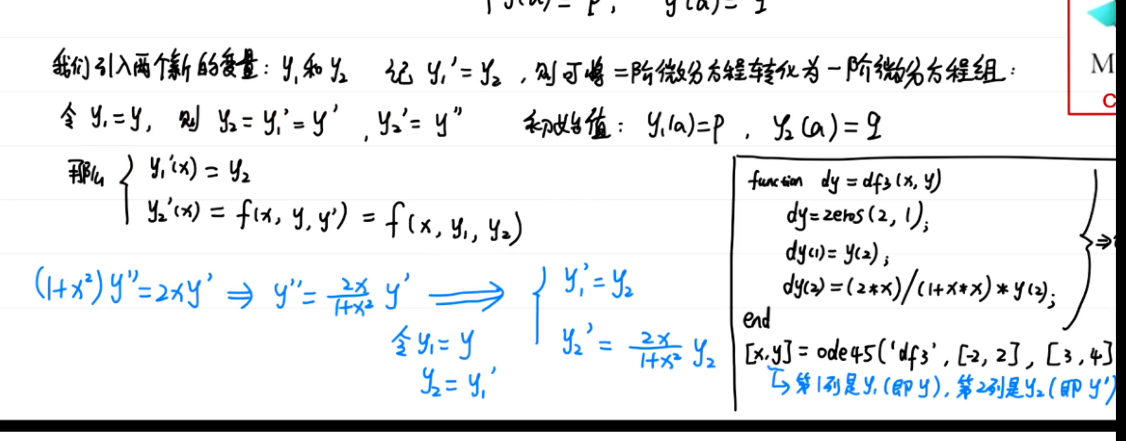 y(a) = p, y'(a) = q
我们引入两个新的变量: y₁和y₂ 记 y₁' = y₂ , 则可将二阶微分方程转化为一阶微分方程组:
令 y₁=y, 则 y₂ = y₁' = y' , y₂' = y'' 初始值: y₁(a)=p , y₂(a) = q
那么 { y₁'(x) = y₂
y₂'(x) = f(x, y, y') = f(x, y₁, y₂)
(1+x²)y''=2xy' ⇒ y''= 2x/(1+x²) y' ⟹ { y₁' = y₂
令 y₁ = y
y₂ = y₁'
y₂' = 2x/(1+x²) y₂
function dy = df3(x, y)
dy=zeros(2, 1);
dy(1) = y(2);
dy(2) = (2*x)/(1+x*x)*y(2);
end
[x,y] = ode45('df3', [-2, 2], [3, 4]
↳ 第1列是y₁(即y), 第2列是y₂(即y')
M
C